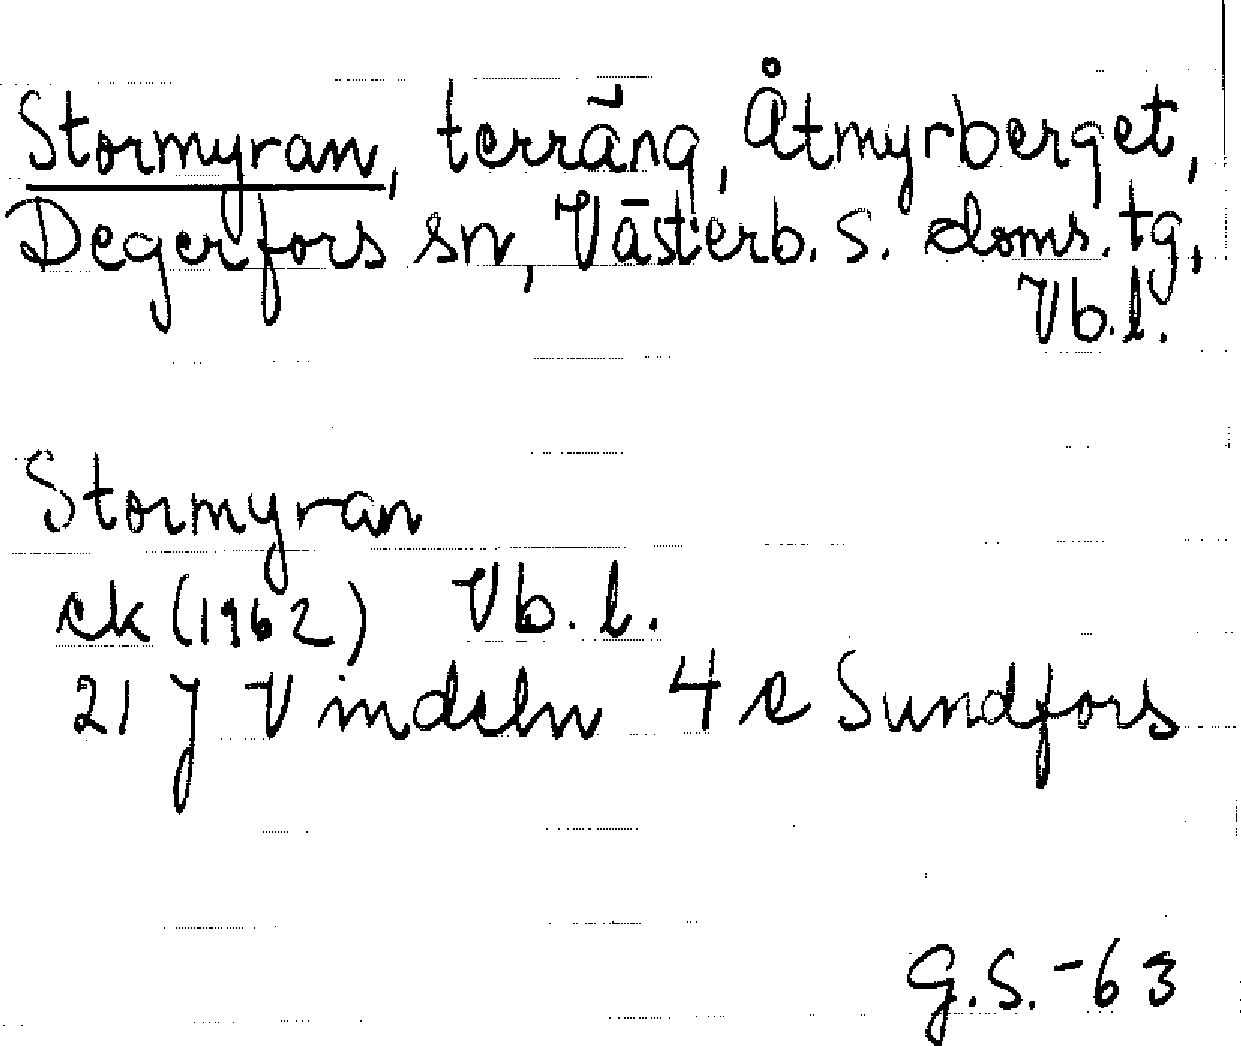 Stormyran, terräng, Åtmyrberget,
Degerfors sn, Västerb. s. doms. tg,
Vb.l.
Stormyran
ek (1962) Vb. l.
21 J Vindeln 4 e Sundfors
G.S. -63